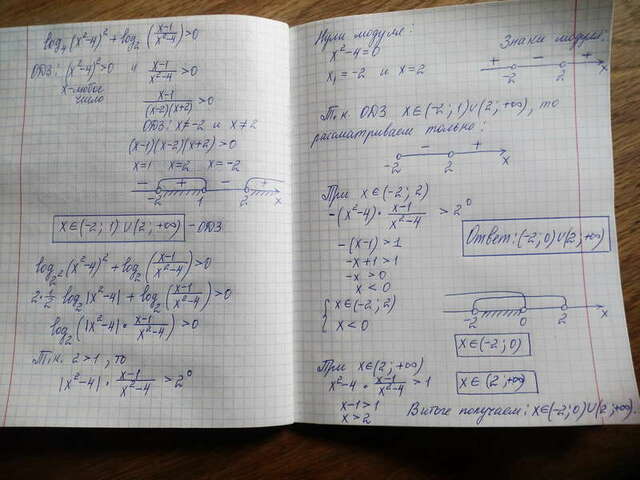 log₄(x²-4)² + log₂(x-1/x²-4) > 0
ОДЗ: (x²-4)² > 0 и x-1/x²-4 > 0
x-любое число
x-1/(x-2)(x+2) > 0
ОДЗ: x ≠ -2 и x ≠ 2
(x-1)(x-2)(x+2) > 0
x=1 x=2 x=-2
- + - +
-2 1 2 x
x∈(-2; 1)∪(2; +∞) - ОДЗ
log₂²(x²-4)² + log₂(x-1/x²-4) > 0
2·1/2 log₂|x²-4| + log₂(x-1/x²-4) > 0
log₂(|x²-4|·x-1/x²-4) > 0
Т.к. 2>1, то
|x²-4|·x-1/x²-4 > 2⁰
Нули модуля:
x²-4=0
x₁=-2 и x=2
Знаки модуля:
+ - +
-2 2 x
Т.к. ОДЗ x∈(-2; 1)∪(2; +∞), то
рассматриваем только:
- +
-2 2 x
При x∈(-2; 2)
-(x²-4)·x-1/x²-4 > 2⁰
-(x-1) > 1
-x+1 > 1
-x > 0
x < 0
{ x∈(-2; 2)
x < 0
-2 0 2 x
x∈(-2; 0)
При x∈(2; +∞)
x²-4·x-1/x²-4 > 1
x-1 > 1
x > 2
x∈(2; +∞)
В итоге получаем: x∈(-2; 0)∪(2; +∞).
Ответ: (-2; 0)∪(2; +∞)